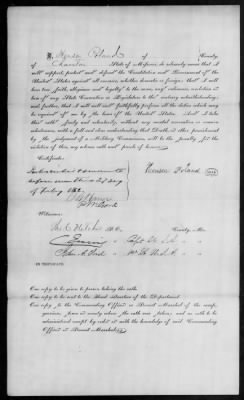 I, Henson Toland of County,
of Chariton State of Missouri, do solemnly swear that I
will support, protect and defend the Constitution and Government of the
United States against all enemies, whether domestic or foreign; that I will
bear true faith, allegiance and loyalty to the same, any ordinance, resolution or
law of any State Convention or Legislature to the contrary notwithstanding;
and further, that I will well and faithfully perform all the duties which may
be required of me by the laws of the United States. And I take
this oath freely and voluntarily, without any mental reservation or evasion
whatsoever, with a full and clear understanding that Death, or other punishment
by the judgment of a Military Commission will be the penalty for the
violation of this, my solemn oath and parole of honor.
Certificate:
Subscribed & sworn to
before me this day
of 1862.
Henson Toland
Witnesses:
County, Mo.
Capt
John A.
IN TRIPLICATE.
One copy to be given to person taking the oath.
One copy to be sent to the Head Quarters of the Department.
One copy to the Commanding Officer or Provost Marshal of the
from its county where the oath was taken; and no oath to be
administered except by order or with the knowledge of said Commanding
Officer or Provost Marshal.